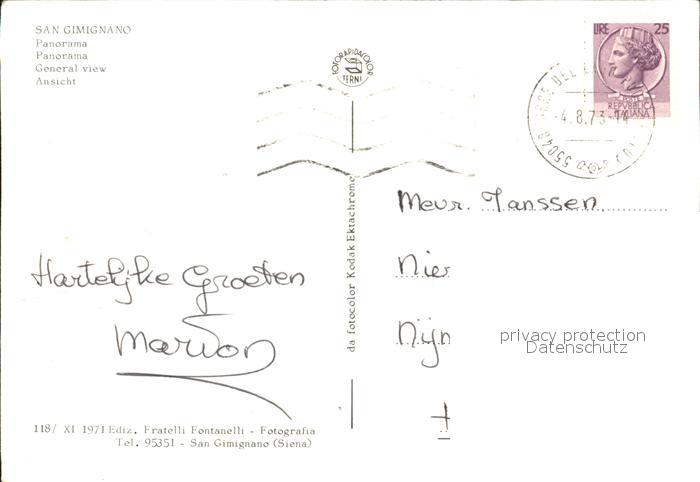 SAN GIMIGNANO
Panorama
Panorama
General view
Ansicht
FOTORAPIDACOLOR
TERNI
LIRE 25
REPVBBLICA
ITALIANA
55048
DEL
4.8.73-14
Hartelijke Groeten
Marion
da fotocolor Kodak Ektachrome
Meur. Janssen
Nier
Nijn
privacy protection
Datenschutz
118/ XI 1971 Ediz. Fratelli Fontanelli - Fotografia
Tel. 95351 - San Gimignano (Siena)